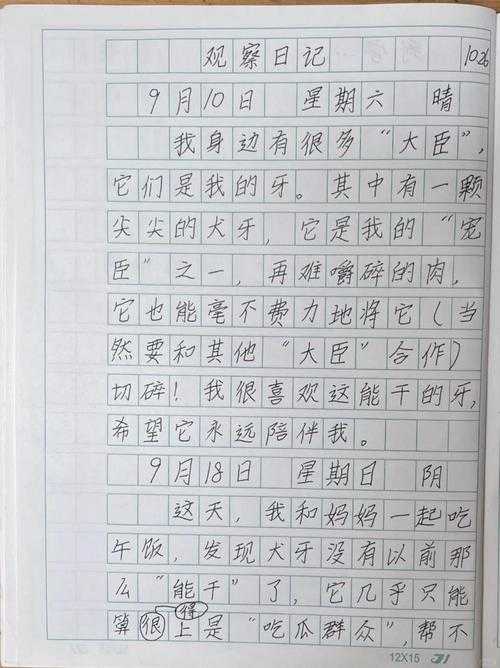 观察日记 1026
9月10日 星期六 晴
我身边有很多“大臣”,
它们是我的牙。其中有一颗
尖尖的犬牙,它是我的“宠
臣”之一,再难嚼碎的肉,
它也能毫不费力地将它(当
然要和其他“大臣”合作)
切碎!我很喜欢这能干的牙,
希望它永远陪伴我。
9月18日 星期日 阴
这天,我和妈妈一起吃
午饭,发现犬牙没有以前那
么“能干”了,它几乎只能
得
算很上是“吃瓜群众”,帮不
12X15